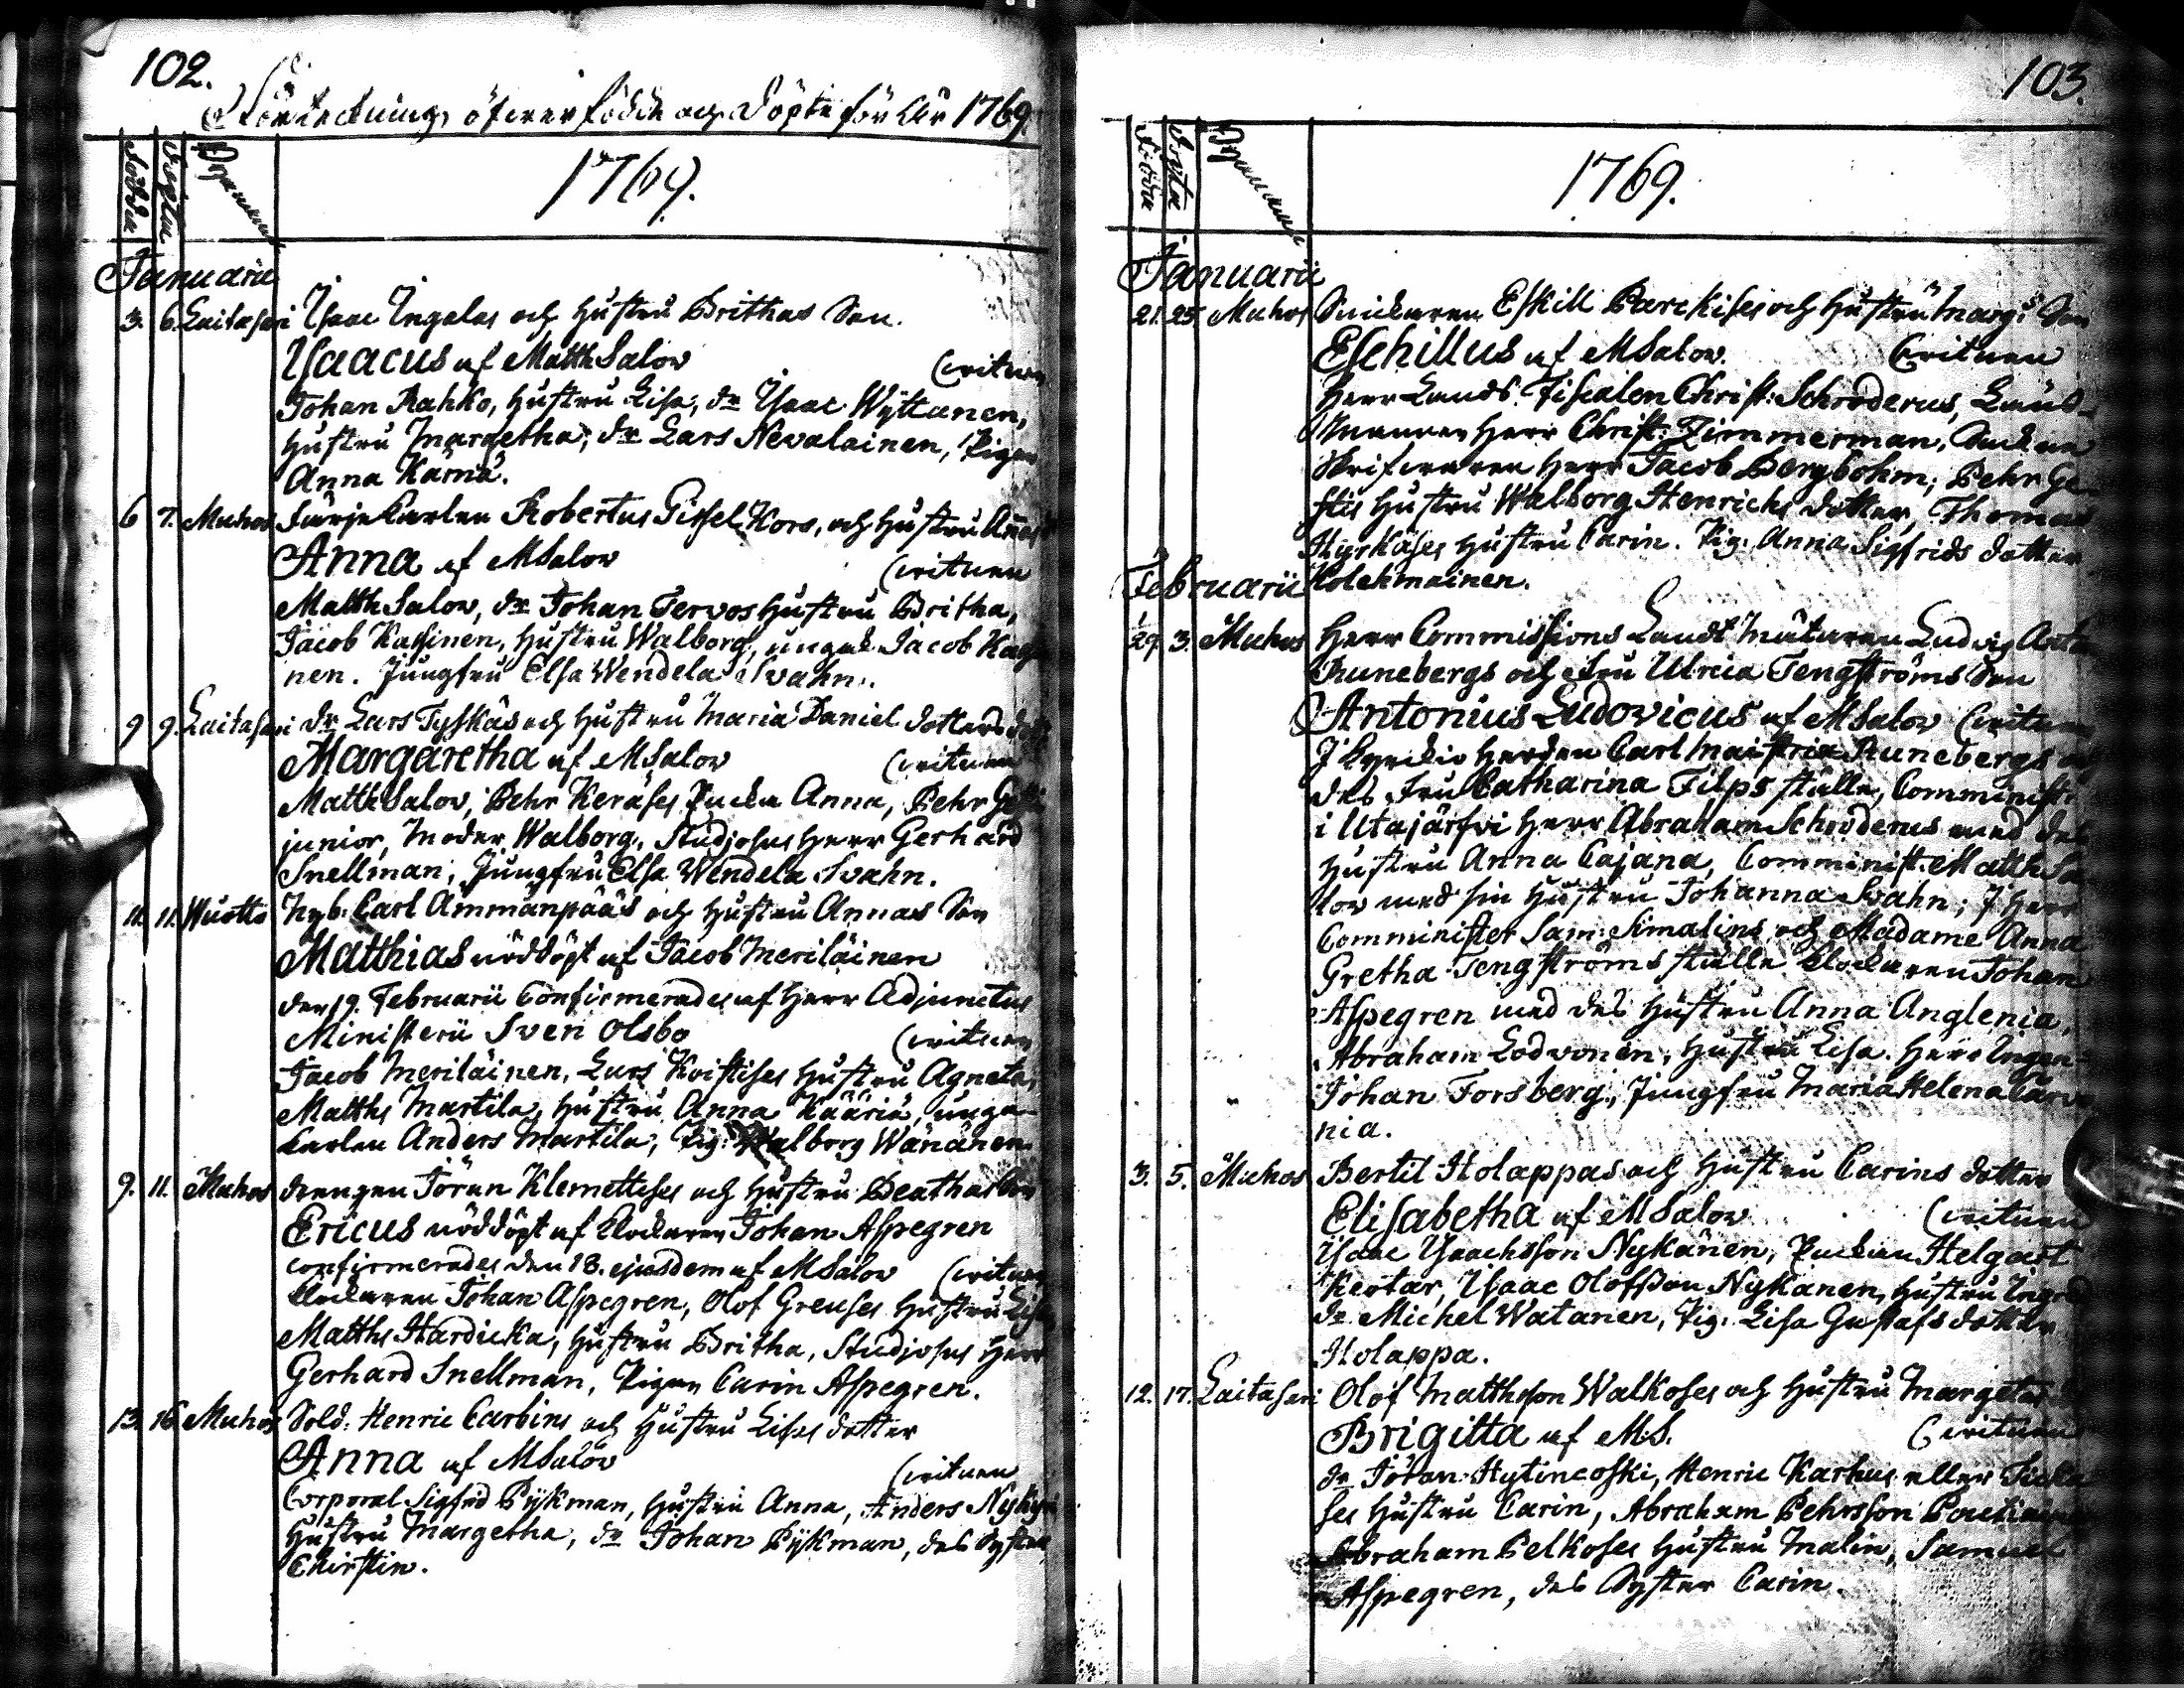 102.
Förteckning öfwer födde och Döpte för År 1769.
Födda
Döpta
Byanamn
1769.
Januarii
3. 6. Laitasari Isaac Ingalas och Hustru Brithas Son
Isaacus af Matth Salov
Johan Rahko, Hustru Lisa, dr. Isaac Wÿttanen,
Hustru Margetha, dr. Lars Nevalainen, Pigan
Anna Kärnä.
6 7. Muhos Färjekarlen Robertus Kors, och Hustru
Anna af MSalov
Matth Salov, dr. Johan Tervos Hustru Britha,
Jacob Kassinen, Hustru Walborg, ungk. Jacob
nen. Jungfru Elsa Wendela Svahn.
9 9. Laitasari dr. Lars Tyskäs och Hustru Maria Daniel dotters
Margaretha af MSalov
Matth Salov, Pehr Keräses Enka Anna, Pehr
junior, Moder Walborg, Studiosus Herr Gerhard
Snellman, Jungfru Elsa Wendela Svahn.
11. 11. Wuotto Nyb. Carl Ämmänpääs och Hustru Annas Son
Matthias nöddöpt af Jacob Meriläinen
den 19. Februarii Confirmerades af Herr Adjunctus
Ministerii Sven Olsbo
Jacob Meriläinen, Lars Hustru Agneta,
Matths Martila, Hustru Anna Kääriä, unga-
karlen Anders Martila, Pig. Walborg Wänänen.
9. 11. Muhos drengen Jöran Klemettises och Hustru Beathas Son
Ericus nöddöpt af Klockaren Johan Aspegren
confirmerades den 18. ejusdem af MSalov
Klockaren Johan Aspegren, Olof Greuses Hustru
Matths Hardicka, Hustru Britha, Studiosus Herr
Gerhard Snellman, Pigan Carin Aspegren.
13. 16. Muhos Sold. Henric Carbins och Hustru Lisas dotter
Anna af MSalov
Corporal Sigfrid Pÿkman, Hustru Anna, Anders
Hustru Margetha, dr. Johan Pÿkman, des Syster
Chirstin.
103.
Födda
Döpta
Byanamn
1769.
Januarii
21. 25. Muhos Snickaren Eskill Parckises och Hustru Marg. Son
Eschillus af MSalov.
Herr Lands Fiscalen Christ: Schroderus, Läns-
Mannen Herr Christ: Zimmerman, Sockne
Skrifvaren Herr Jacob Bergbohm, Pehr Ge-
stis Hustru Walborg Henrichs dotter, Thomas
Hyrkäses Hustru Carin. Pig. Anna Sigfrids dotter
Kolehmainen.
Februarii
29. 3. Muhos Herr Commissions Landt Mätaren Ludvig Anton
Runebergs och Fru Ulrica Tengströms Son
Antonius Ludovicus af MSalov
I Kyrckio Herden Carl Runebergs och
des Fru Catharina Filps ställe, Comminist:
i Utajärfvi Herr Abraham Schroderus med des
Hustru Anna Cajana, Comminist: Matth Sa-
lov med sin Hustru Johanna Svahn; I Herr
Comminister Sam: Simalins och Madame Anna
Gretha Tengströms ställe Klockaren Johan
Aspegren med des Hustru Anna Anglenia,
Abraham Lodvonen, Hustru Lisa. Herr
Johan Forsberg, Jungfru Maria Helena
nia.
3. 5. Muhos Bertil Holappas och Hustru Carins dotter
Elisabetha af MSalov
Isaac Isaachsson Nykänen, Enckan Helga
Isaac Olofsson Nykänen, Hustru
dr. Michel Watanen, Pig. Lisa Gustafs dotter
Holappa.
12. 17. Laitasari Olof Matthsson Walkoses och Hustru Margetas
Brigitta af M.S.
dr. Jöran Hytincoski, Henric Karhus eller
ses Hustru Carin, Abraham Pehrsson
Abraham Pelkoses Hustru Malin, Samuel
Aspegren, des Syster Carin.